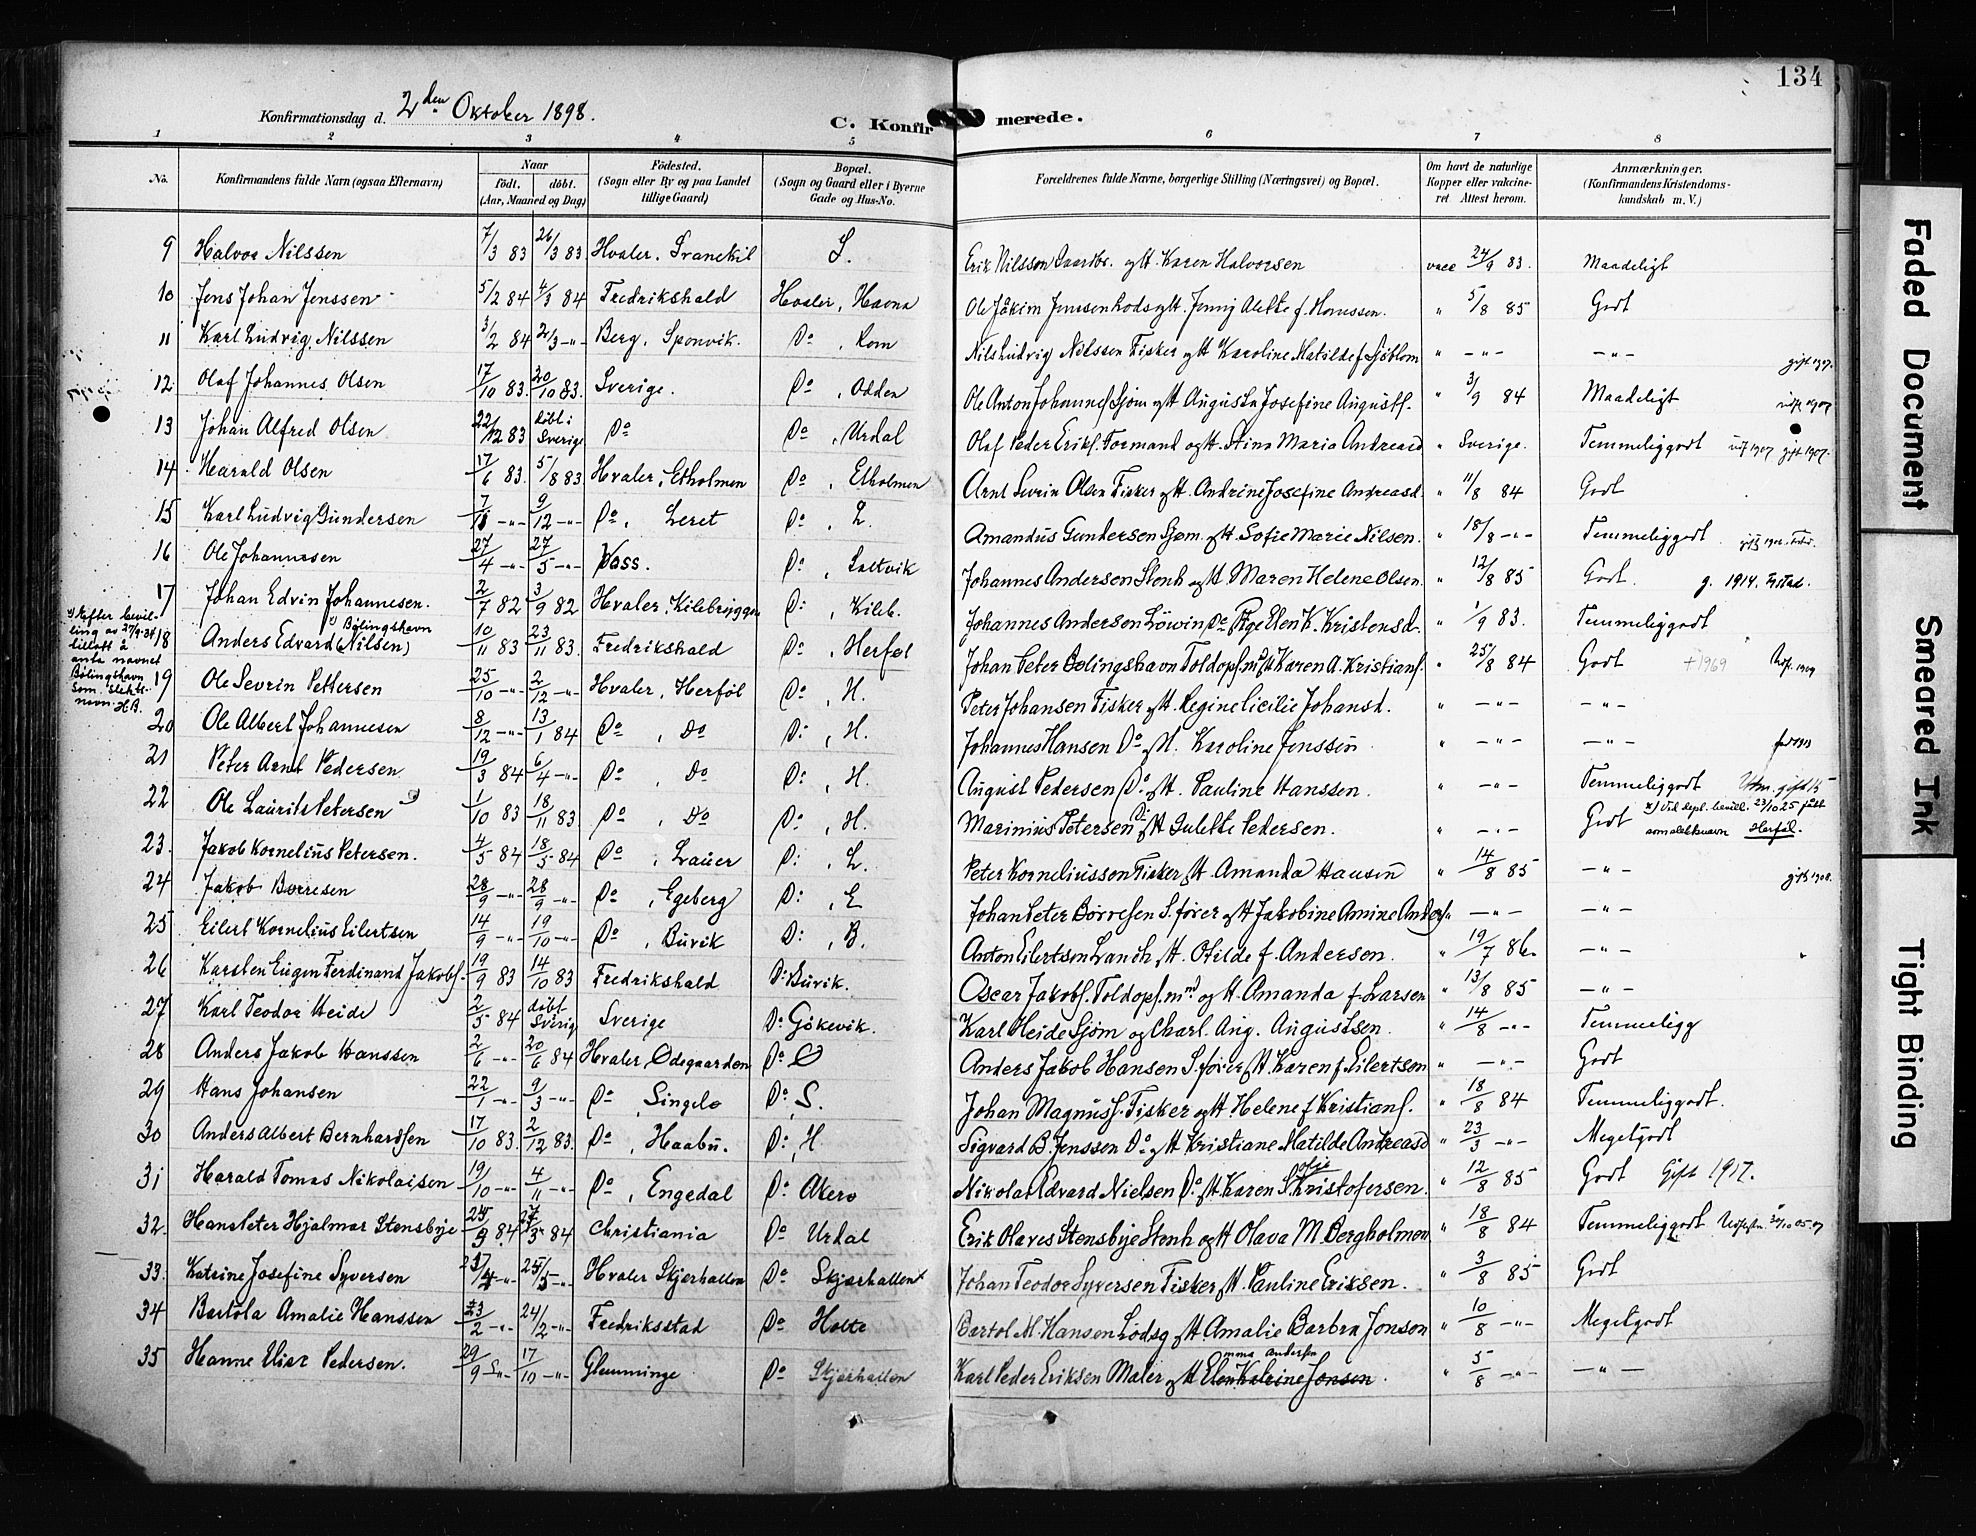 134
Konfirmationsdag d. 2den Oktober 1898.
C. Konfirmerede.
1 2 3 4 5 6 7 8
No. Konfirmandens fulde Navn (ogsaa Efternavn) Naar födt. döbt. (Aar, Maaned og Dag) Födested. (Sogn eller By og paa Landet tillige Gaard) Bopæl. (Sogn og Gaard eller i Byerne Gade og Hus-No. Forældrenes fulde Navne, borgerlige Stilling (Næringsvei) og Bopæl. Om havt de naturlige Kopper eller vakcineret Attest herom. Anmærkninger. (Konfirmandens Kristendomskundskab m. V.)
9 Halvor Nilssen 7/3 83 26/3 83 Hvaler, Svanekil S. Erik Nilsson Gaardbr. og H. Karen Halvorsen vacc 24/9 83. Maadeligt
10 Jens Johan Jenssen 5/2 84 4/3 84 Fredrikshald Hvaler, Havna Ole Jåkim Jenssen Lods og H. Jenny Alette f. " 5/8 85 Godt
11 Karl Ludvig Nilssen 3/2 84 2/3 -"- Berg, Sponvik. Do, Rom Nils Ludvig Nilssen Fisker og H Karoline Matilde f Sjöblom " -"- -"-
12 Olaf Johannes Olsen 17/10 83. 20/10 83. Sverige. Do, Odden Ole Anton Johannesf Sjøm og H Augusta Josefine Augustf. " 3/9 84 Maadeligt
13 Johan Alfred Olsen 22/12 83 döbt i Sverige Do Do, Urdal Olaf Peder Eriks. Formand og H. Stina Maria Andreasd " Sverige. Temmeliggodt gift 1907.
14 Harald Olsen 17/6 83. 5/8 83 Hvaler, Etholmen Do, Etholmen Arnt Sevrin Olsen Fisker og H. Andrine Josefine Andreasd. " 11/8 84 Godt
15 Karl Ludvig Gundersen 7/11 -"- 9/12 -"- Do, Leret Do, L. Amandus Gundersen Sjøm. og H. Sofie Marie Nilsen. " 18/8 -"- Temmeliggodt
16 Ole Johannesen 27/4 -"- 27/5 -"- Voss. Do, Saltvik Johannes Andersen Stenh og H Maren Helene Olsen. " 12/8 85 Godt. g. 1914.
17 Johan Edvin Johannesen. 2/7 82 3/9 82 Hvaler, Kilebryggen D:, Kileb. Johannes Andersen Löwin De Pige Elen K. Kristensd. " 1/9 83. Temmeliggodt
x) Bølingshavn
18 Anders Edvard (Nilsen) 10/11 83 23/11 83. Fredrikshald Do, Herføl Johan Peter Bølingshavn Toldopsm. og H Karen A. Kristians. " 25/8 84 Godt +1969
x) Kefter bevilling av 27/9-34 tillatt å anta navnet Bølingshavn som slektsnavn. H.B.
19 Ole Sevrin Pettersen 25/10 -"- 2/12 -"- Hvaler, Herføl Do, H. Peter Johansen Fisker og H. Regine Cicilie Johansd. " -"- -"-
20 Ole Albert Johannesen 8/12 -"- 13/1 84 Do, Do D:, H. Johannes Hansen Do og H. Karoline Jenssen " -"- -"-
21 Peter Arnt Pedersen 19/3 84 6/4 -"- Do, Do D:, H. August Pedersen Do og H. Pauline Hanssen. " -"- Temmeliggodt
22 Ole Laurits Petersen x) 1/10 83 18/11 83 Do, Do D:, H. Marinius Petersen Do og H Gulette Pedersen. " -"- Godt x) Ved depl. bevill. 23/10 25 fått som slektsnavn Herføl.
23. Jakob Kornelius Petersen. 4/5 84 18/5 84 Do, Lauer D:, L. Peter Korneliusson Fisker og H. Amanda Hansen " 14/8 85 -"- gift 1908.
24 Jakob Børresen 28/9 -"- 28/9 -"- Do, Egeberg D:, E Johan Peter Börresen S.fører og H Jakobine Amine Anders. " -"- -"-
25 Eilert Kornelius Eilertsen 14/9 -"- 19/10 -"- Do, Buvik D:, B. Anton Eilertsen og H. Otilde f. Andersen. " 19/7 86. -"-
26 Karsten Eugen Ferdinand Jakobs. 19/9 83 14/10 83 Fredrikshald D: Buvik. Oscar Jakobs. Toldops.md og H. Amanda f. Larsen " 13/8 85 -"-
27 Karl Teodor Heide 2/5 84 døbt Sverig Sverige D: Gökevik. Karl Heide Sjøm og Charl. Aug. Augustsen. " 14/8 -"- Temmeligg
28 Anders Jakob Hanssen 2/6 -"- 20/6 84 Hvaler Ødegaarden D: Ø Anders Jakob Hansen S.fører og H. Karen f Eilertsen " -"- Godt
29 Hans Johansen 22/1 -"- 9/3 -"- Do, Singelø D:, S. Johan Magnuss. Fisker og H. Helene f Kristians. " 18/8 84 Temmeliggodt.
30 Anders Albert Bernhardsen 17/10 83. 2/12 83. Do, Haabu. D:, H Sigvard B. Jenssen Do og H Kristiane Matilde Andreasd " 23/3 -"- Megetgodt
31 Harald Tomas Nikolaisen 19/10 -"- 4/11 -"- Do, Engedal D: Akerø Nikolai Edvard Nielsen Do og H Karen Sofie Kristofersen. " 12/8 85 Godt Gift 1917.
32. Hans Peter Hjalmar Stensbye 25/3 84 84 Christiania Do Urdal Erik Olaves Stensbye Stenh og H Olava M. Bergholmen " 18/8 84 Temmeliggodt
33. Katrine Josefine Syversen 27/4 -"- 25/5 -"- Hvaler Skjærhallen Do Skjærhallen Johan Teodor Syversen Fisker og H. Pauline Eriksen. " 3/8 85 Godt
34 Bartola Amalie Hanssen 23/2 -"- 24/2 -"- Fredriksstad Do Holte Bartol M. Hansen Lodsg og H Amalie Barbra Jonson " 10/8 -"- Megetgodt
35 Hanne Elise Pedersen. 29/9 -"- 17/10 -"- Glemminge Do Skjærhallen Karl Peder Eriksen Maler og H Elen Katrine Jonsen. " 5/8 -"- -"-
Faded Document
Smeared Ink
Tight Binding